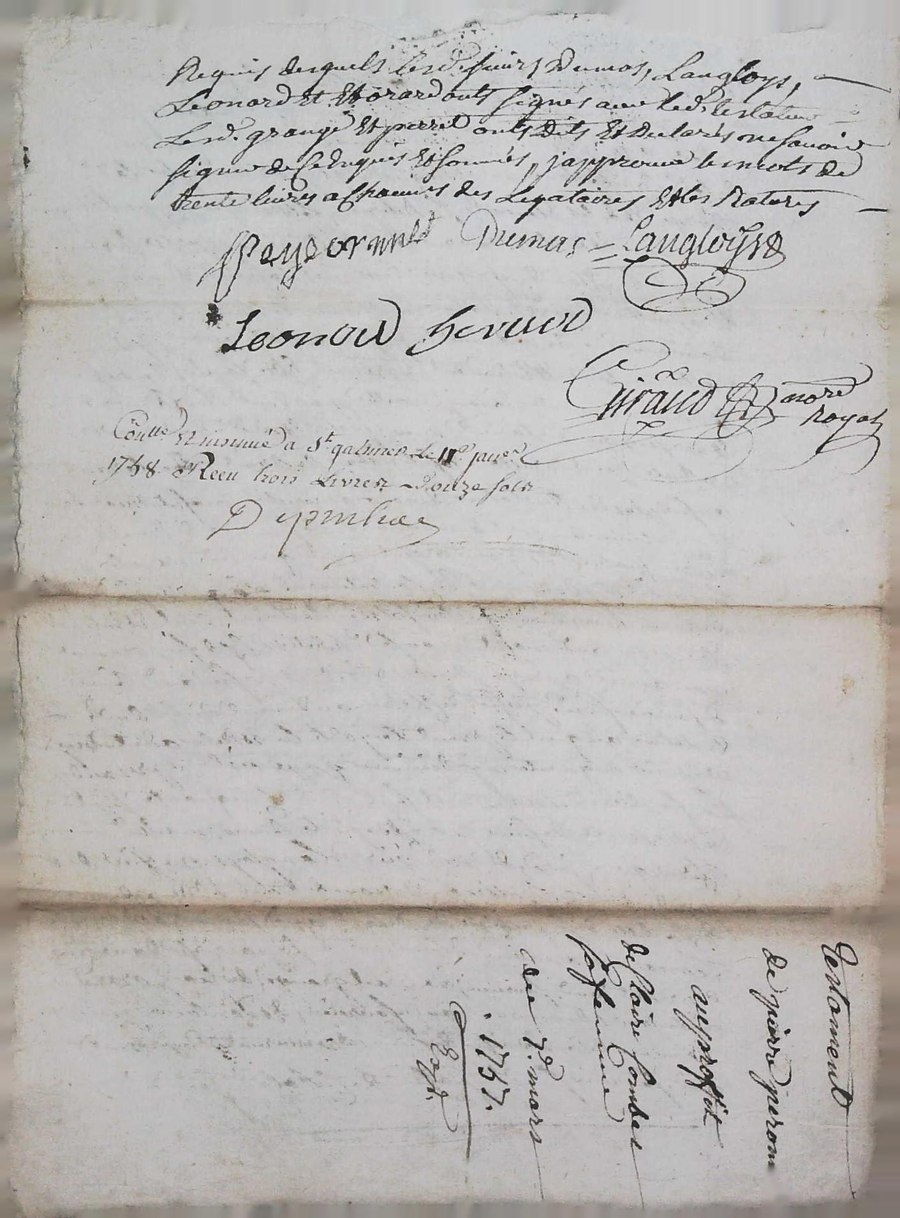 Requis desquels lesd. sieurs Dumas, Langloys,
Leonard et Evrard onts signés avec led. testateur
Lesd. grange et perret onts Dits et declarés ne savoir
signer de ce Enquis et sommés, japprouve le mots de
trente livres a chacuns des Legataires et les Ratures
Dumas Langloys
Leonard
Giraud nore
royal
Conlle et insinué a St galmier le 11e janer
1758 Receu trois Livres Douze sols
Testament
de pierre peron
au proffit
de Claire Combes
sa femme
du 7e mars
1757.
Exp.